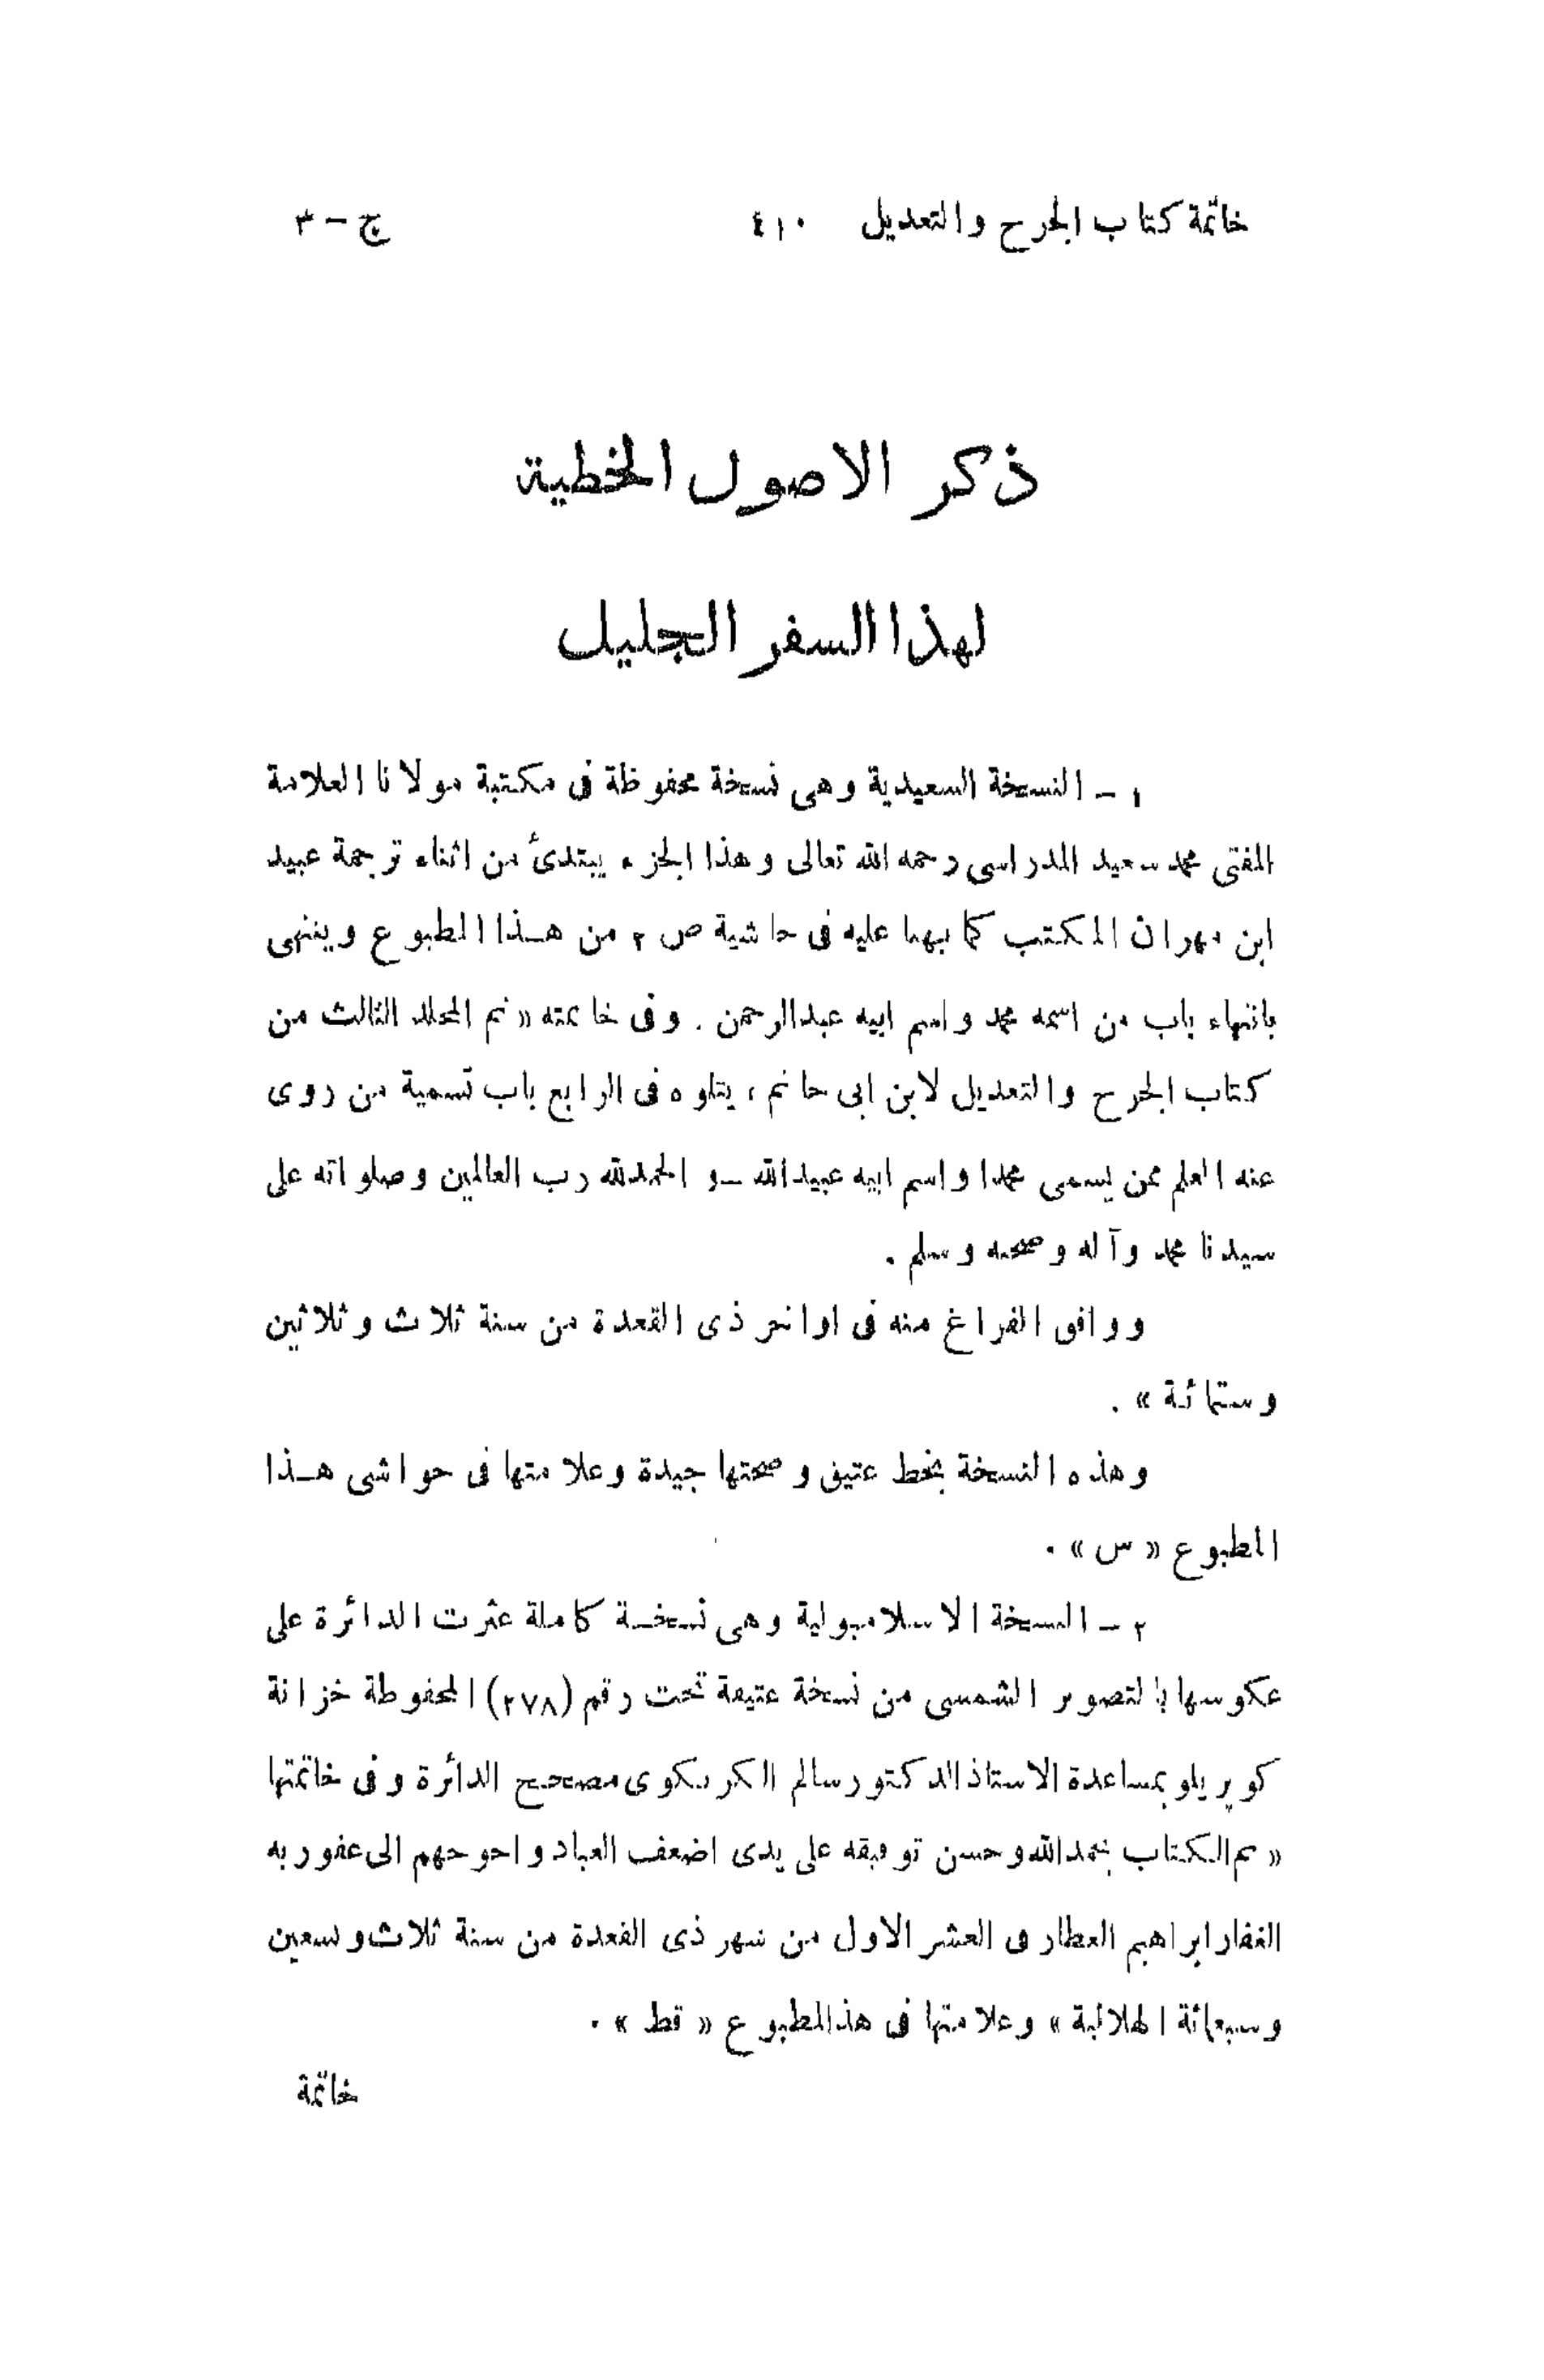 خاتمة كتاب الجرح والتعديل ٤١٠ ج - ٣
ذكر الاصول الخطية
لهذا السفر الجليل
١ - النسخة السعيدية وهى نسخة محفوظة فى مكتبة مولانا العلامة
المفتى محمد سعيد المدراسى رحمه الله تعالى وهذا الجزء يبتدئ من اثناء ترجمة عبيد
ابن مهران المكتب كما نبهنا عليه فى حاشية ص ٢ من هذا المطبوع وينتهى
بانتهاء باب من اسمه محمد واسم ابيه عبدالرحمن . وفى خاتمته « تم المجلد الثالث من
كتاب الجرح والتعديل لابن ابى حاتم ، يتلوه فى الرابع باب تسمية من روى
عنه العلم ممن يسمى محمدا واسم ابيه عبيدالله - و الحمدلله رب العالمين وصلواته على
سيدنا محمد وآله وصحبه وسلم .
ووافق الفراغ منه فى اواخر ذى القعدة من سنة ثلاث وثلاثين
وستمائة » .
وهذه النسخة بخط عتيق وصحتها جيدة وعلامتها فى حواشى هذا
المطبوع « س » .
٢ - النسخة الاسلامبولية وهى نسخة كاملة عثرت الدائرة على
عكوسها بالتصوير الشمسى من نسخة عتيقة تحت رقم (٢٧٨) المحفوظة خزانة
كوپريلو بمساعدة الاستاذ الدكتور سالم الكرنكوى مصحح الدائرة وفى خاتمتها
« تم الكتاب بحمدالله وحسن توفيقه على يدى اضعف العباد واحوجهم الى عفو ربه
الغفار ابراهيم العطار فى العشر الاول من شهر ذى القعدة من سنة ثلاث و
وسبعمائة الهلالية » وعلامتها فى هذالمطبوع « قط » .
خاتمة